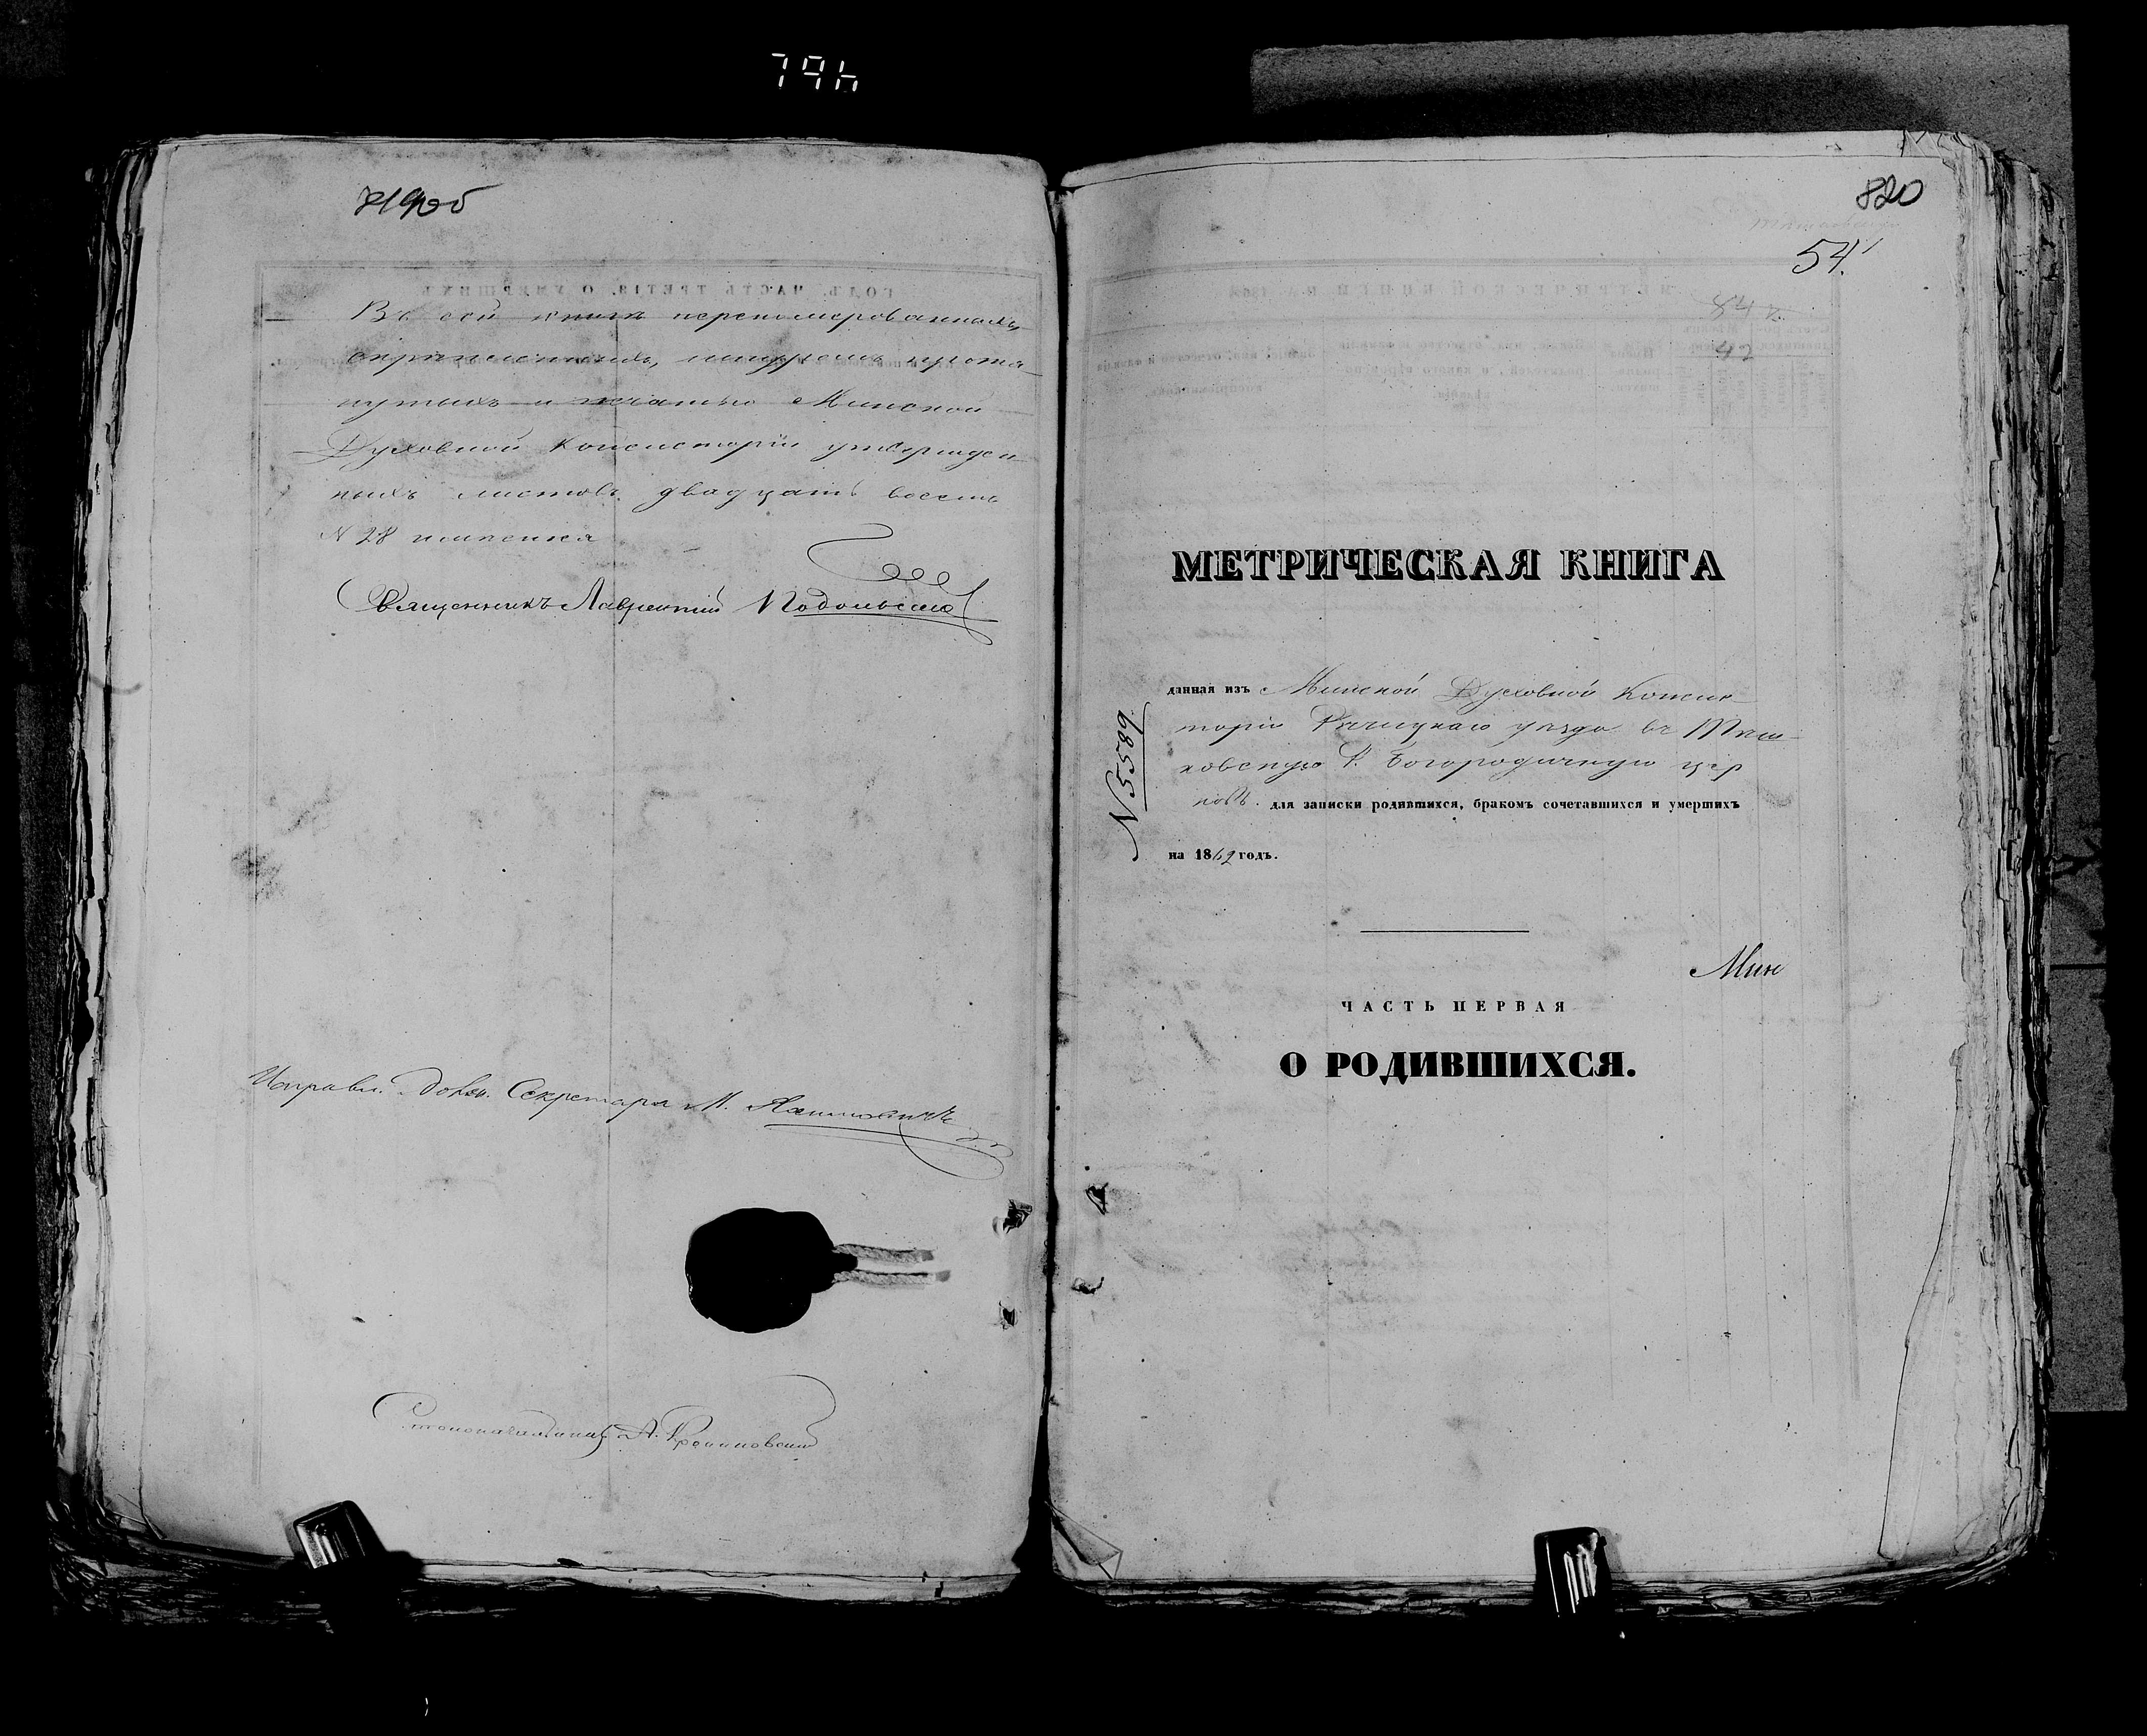 794
819об
Въ сей книгѣ перенумерованныхъ,
скрѣпленныхъ, шнуромъ протя-
нутыхъ и печатью Минской
Духовной Консисторіи утвержден-
ныхъ листовъ двадцать восемь
N 28
Священникъ Лаврентій Подольскій
Исправл. Должн. Секретаря М.
Столоначальникъ А.
820
54
84
42
МЕТРИЧЕСКАЯ КНИГА
данная изъ Минской Духовной Консис-
торіи Рѣчицкаго уѣзда въ
Р. Богородичную цер
ковь. для записки родившихся, бракомъ сочетавшихся и умершихъ
на 1862 годъ.
N 5589
Мин
ЧАСТЬ ПЕРВАЯ
О РОДИВШИХСЯ.